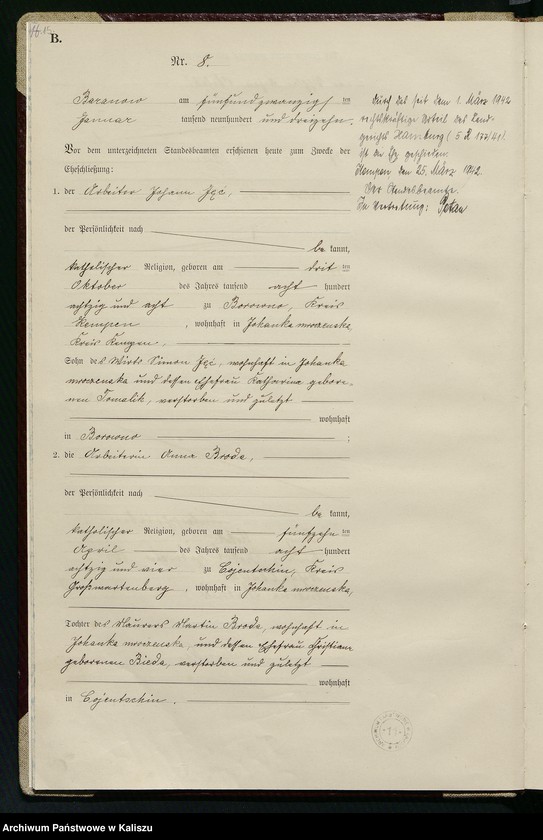 B.
Nr. 8.
Baranow am fünfundzwanzigsten ten
Januar tausend neunhundert und dreizehn.
Vor dem unterzeichneten Standesbeamten erschienen heute zum Zwecke der
Eheschließung:
1. der Arbeiter Johann
der Persönlichkeit nach
be kannt,
katholischer Religion, geboren am drit ten
Oktober des Jahres tausend acht hundert
achtzig und acht zu Borowno, Kreis
Kempen, wohnhaft in Johanka mroczenska,
Kreis Kempen,
Sohn des Wirts Simon wohnhaft in Johanka
mroczenska und dessen Ehefrau Katharina gebore-
nen Tomalik, verstorben und zuletzt
wohnhaft
in Borowno ;
2. die Arbeiterin Anna Broda,
der Persönlichkeit nach
be kannt,
katholischer Religion, geboren am fünfzehn ten
April des Jahres tausend acht hundert
achtzig und vier zu Cojentschin, Kreis
Großwartenberg, wohnhaft in Johanka mroczenska,
Tochter des Maurers Martin Broda, wohnhaft in
Johanka mroczenska, und dessen Ehefrau Christiane
geborenen Bieda, verstorben und zuletzt
wohnhaft
in Cojentschin.
Durch das seit dem 1. März 1942
rechtskräftige Urteil des Land-
gerichts Hamburg (5 R 177/41)
ist die Ehe geschieden.
Kempen den 25. März 1942.
Der Standesbeamte.
In Vertretung:
Archiwum Państwowe w Kaliszu